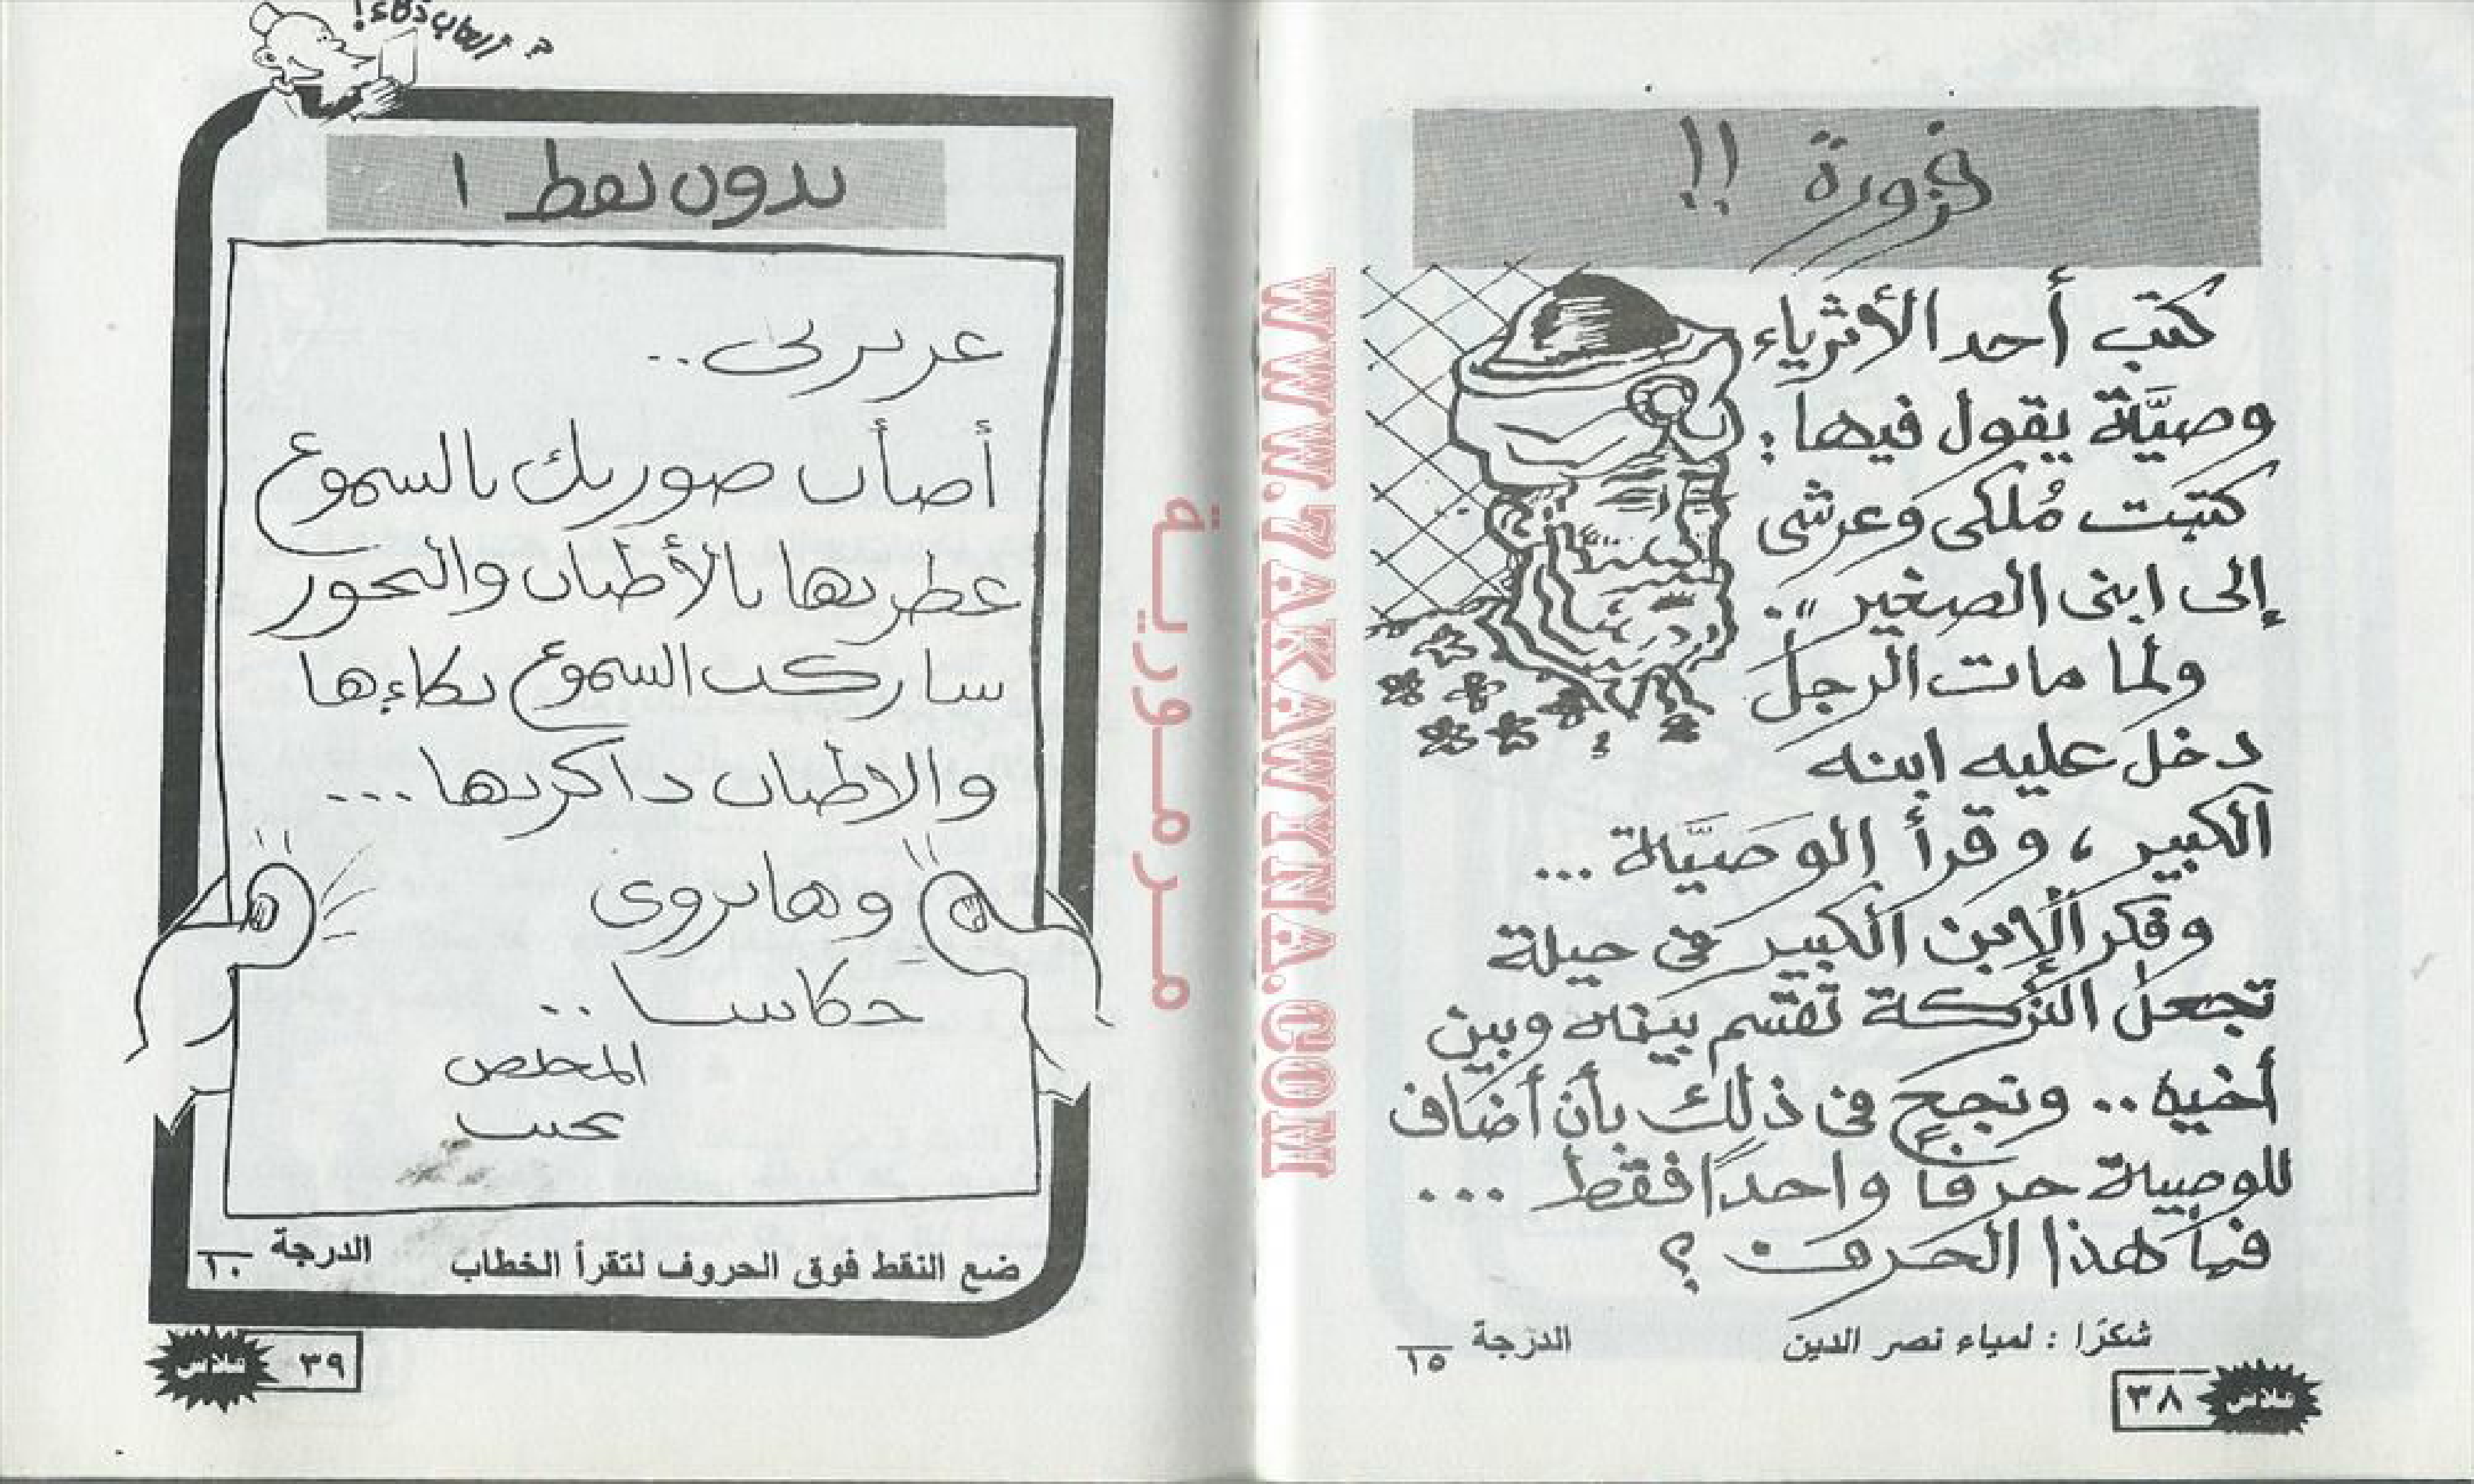 فزورة !!
كتب أحد الأثرياء
وصيَّة يقول فيها :
كتبت مُلكى وعرشى
إلى ابنى الصغير " .
ولما مات الرجل
دخل عليه ابنه
الكبير ، وقرأ الوصيَّة ...
وفكر الابن الكبير فى حيلة
تجعل التركة تقسم بينه وبين
أخيه .. ونجح فى ذلك بأن أضاف
للوصية حرفاً واحداً فقط ...
فما هذا الحرف ؟
شكرًا : لمياء نصر الدين
الدرجة ١٥
٣٨
فلاش
WWW.7AKAWINA.COM
مرمورية
ألعاب ذكاء !
ٮدوں ٮٯط ١
عرٮرٮى ..
أصأٮ صورٮك ٮالسموع
عطرٮها ٮالأطٮاٮ والٮحور
سارکٮ السموع ٮكاءها
والاطٮاٮ داكرٮها ...
وهاٮروى
حكاٮٮا ..
المحلص
ٮحٮٮ
ضع النقط فوق الحروف لتقرأ الخطاب
الدرجة ١٠
٣٩
فلاش